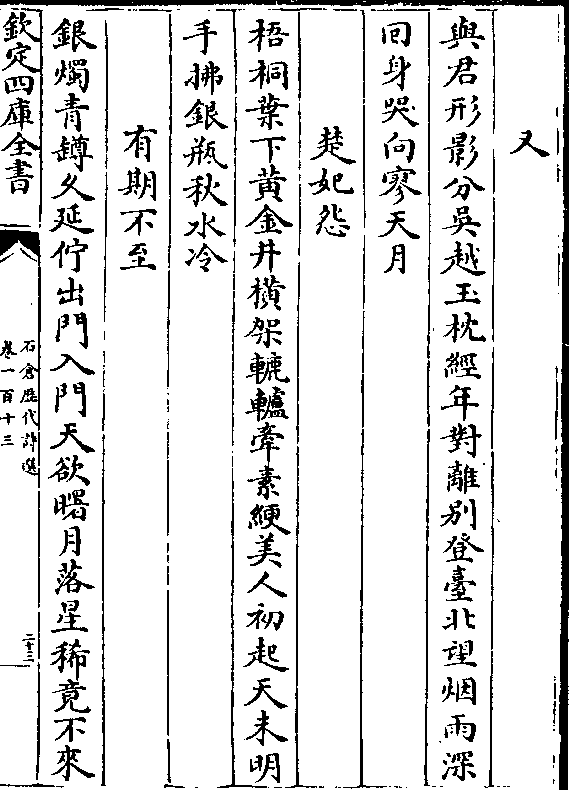 又
與君形影分吳越玉枕經年對離别登臺北望烟雨深
回身哭向寥天月
楚妃怨
梧桐葉下黄金井橫架轆轤牽素綆美人初起天未明
手拂銀瓶秋水冷
有期不至
銀燭青罇久延佇出門入門天欲曙月落星稀竟不來
欽定四庫全書
石倉歷代詩選
卷一百十三
二十三